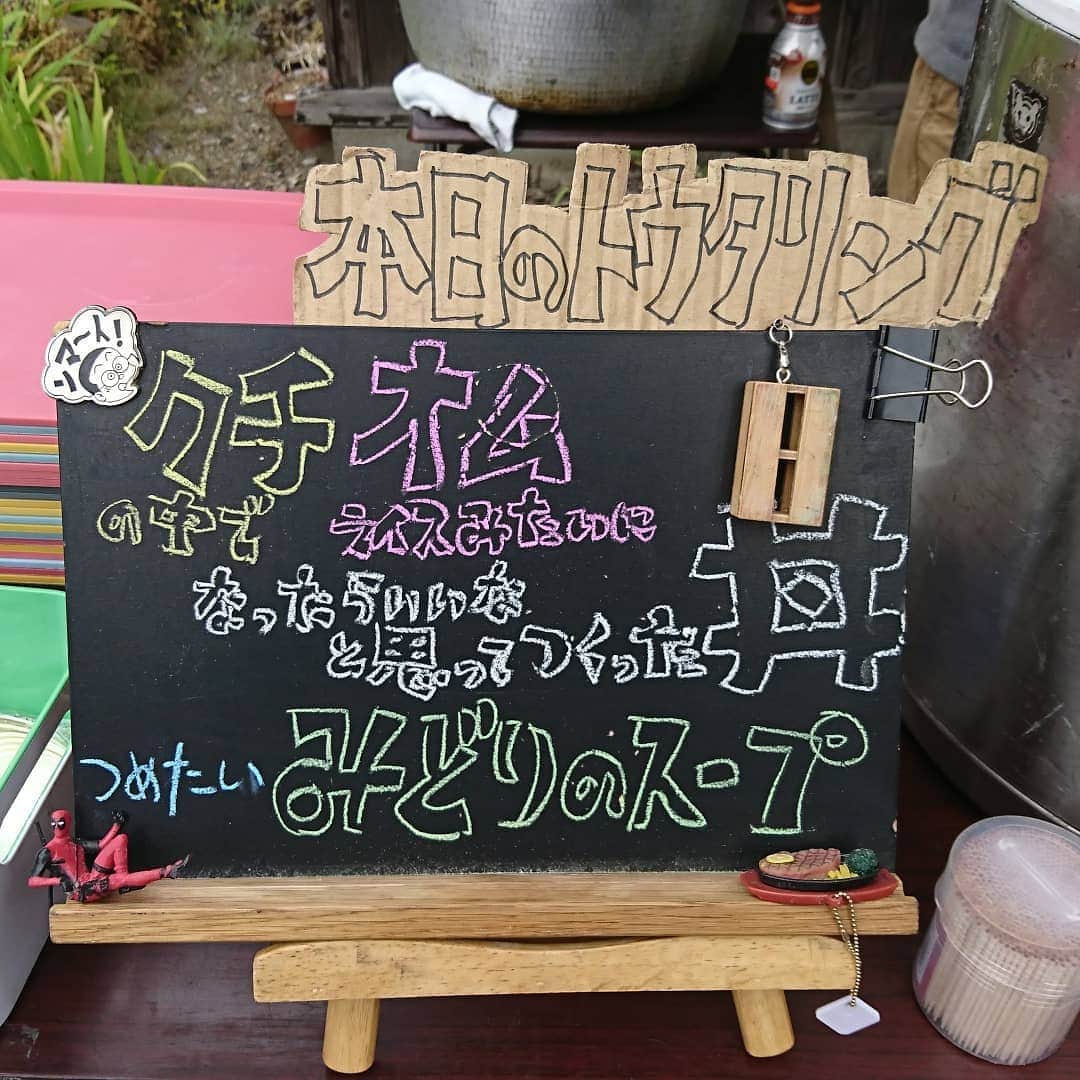 LATTE
本日のトウタリング
ンマート!
クチ オム
の中で ライスみたいに
なったらいいな
と思ってつくった丼
つめたい みどりのスープ